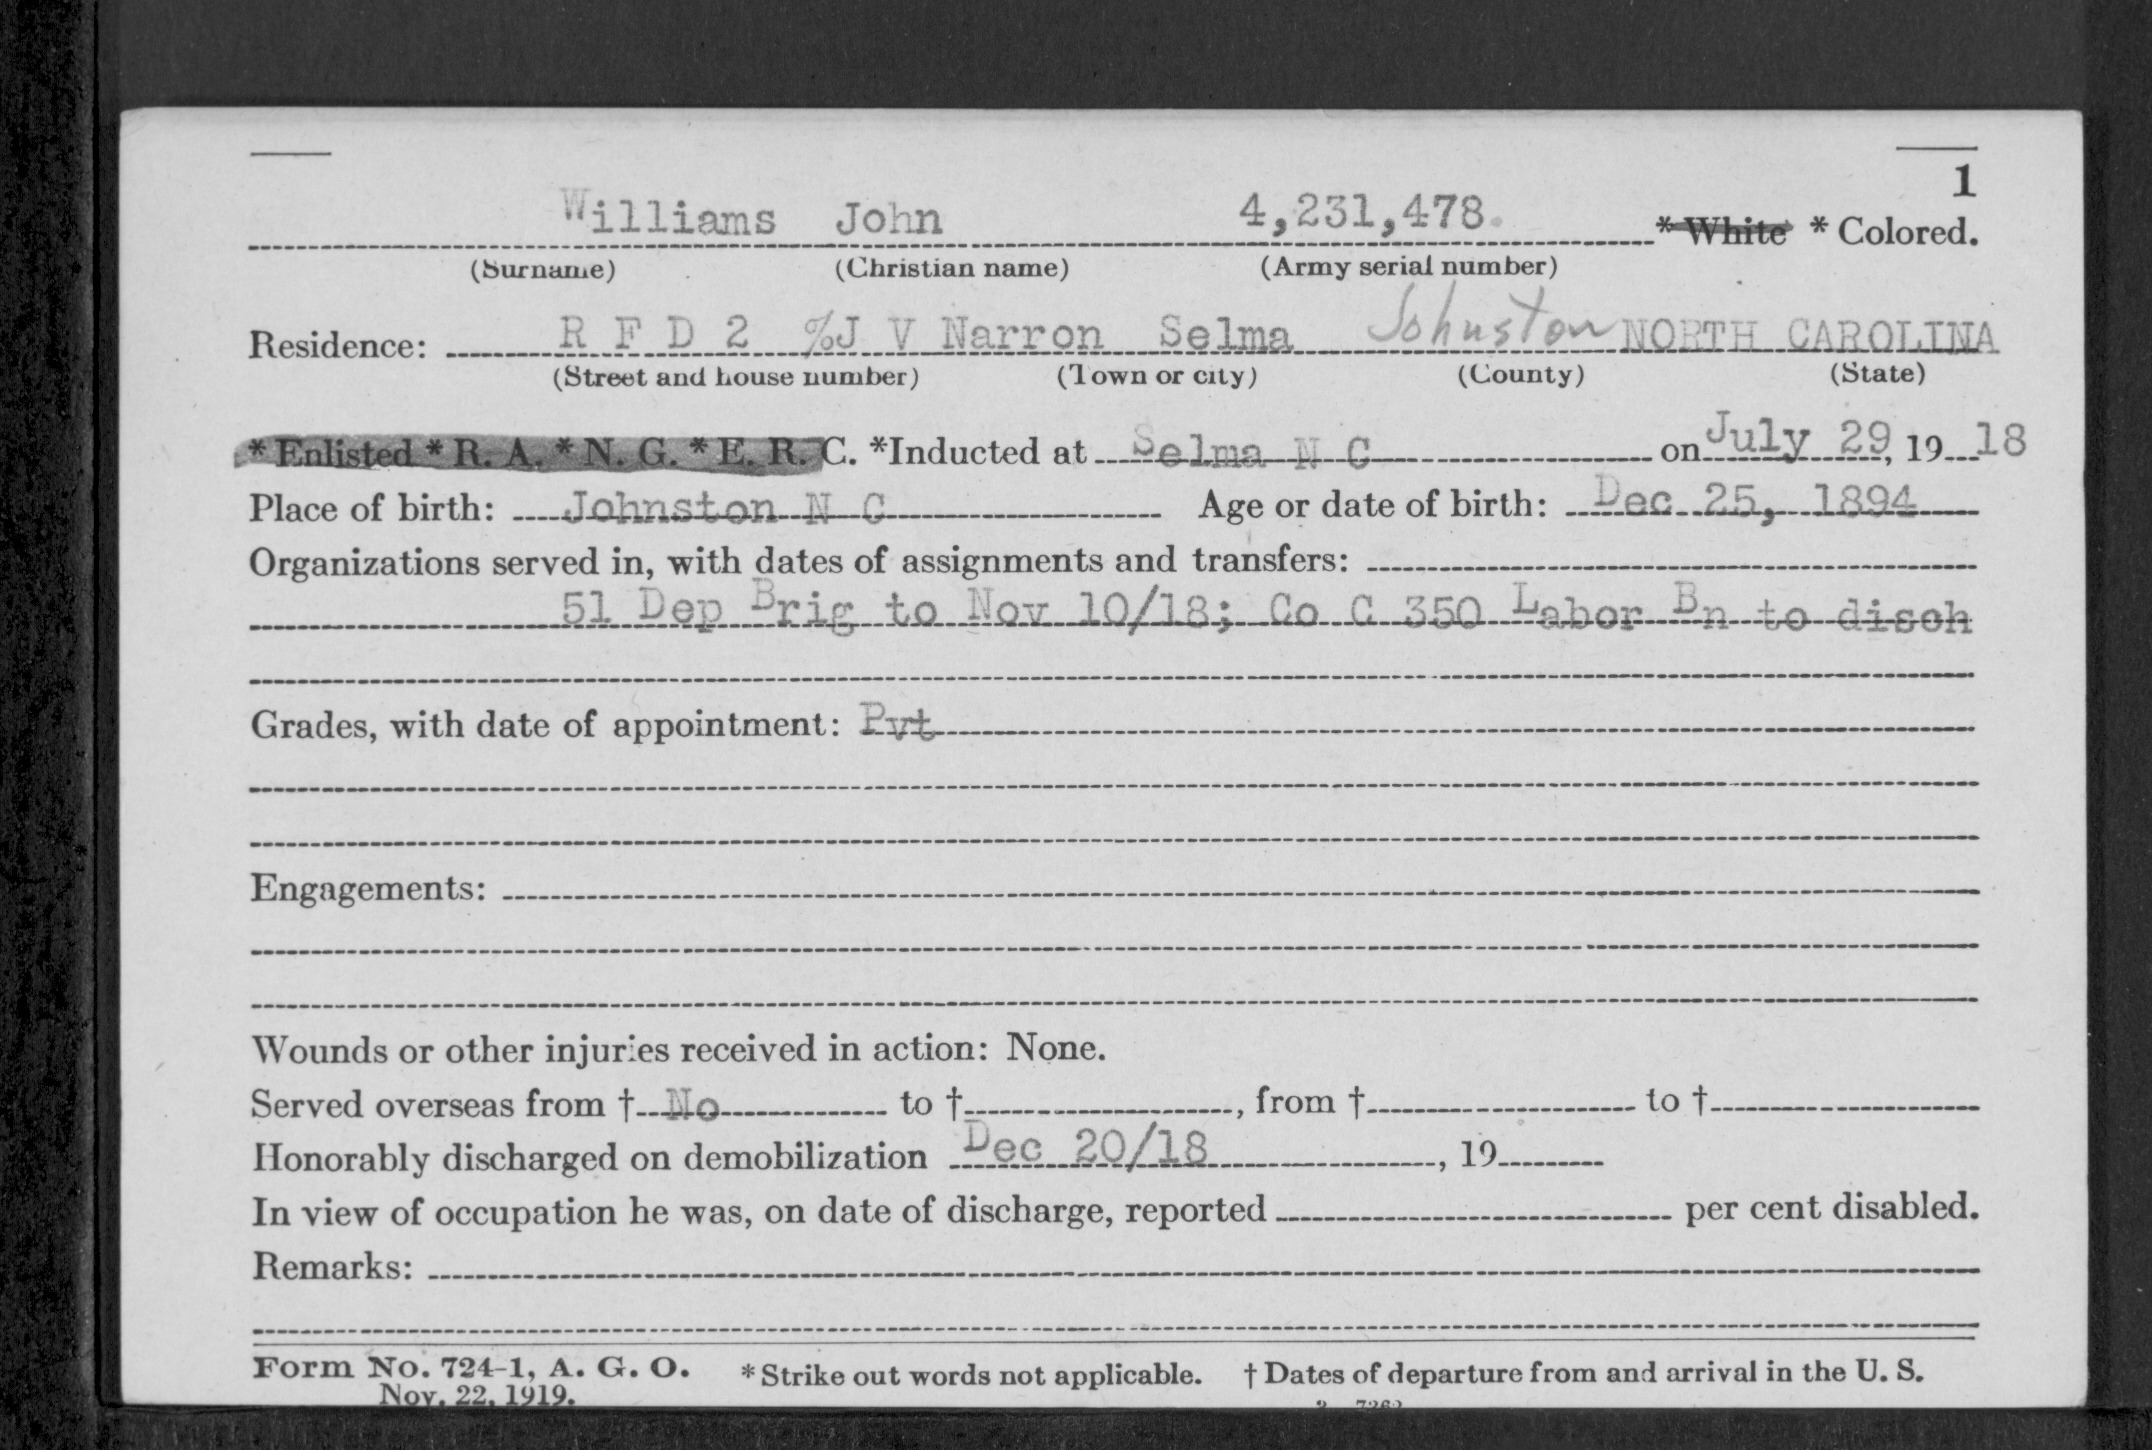 1
Williams John 4,231,478. * White * Colored.
(Surname) (Christian name) (Army serial number)
Residence: R F D 2 %J V Narron Selma Johnston NORTH CAROLINA
(Street and house number) (Town or city) (County) (State)
* Enlisted * R. A. * N. G. * E. R. C. *Inducted at Selma N C on July 29, 19 18
Place of birth: Johnston N C Age or date of birth: Dec 25, 1894
Organizations served in, with dates of assignments and transfers:
51 Dep Brig to Nov 10/18; Co C 350 Labor Bn to disch
Grades, with date of appointment: Pvt
Engagements:
Wounds or other injuries received in action: None.
Served overseas from † No to †, from † to †
Honorably discharged on demobilization Dec 20/18, 19
In view of occupation he was, on date of discharge, reported per cent disabled.
Remarks:
Form No. 724-1, A. G. O. * Strike out words not applicable. † Dates of departure from and arrival in the U. S.
Nov. 22, 1919.